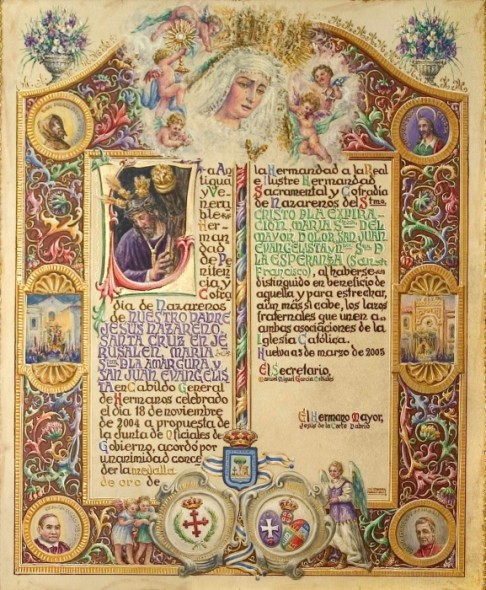 La An
tigua
y Ve-
nera
ble Her-
man
dad
de Pe
niten
cia y
Cofra
día de Nazarenos
de NUESTRO PADRE
JESÚS NAZARENO,
SANTA CRUZ EN JE
RUSALEN, MARÍA
Stma. D LA AMARGURA Y
SAN JUAN EVANGELIS
TA en Cabildo General
de Hermanos celebrado
el día 18 de noviembre
de 2004 a propuesta de
la Junta de Oficiales de
Gobierno, acordó por
unanimidad conce
der la medalla
de oro de
la Hermandad a la Real
e Ilustre Hermandad
Sacramental y Cofradía
de Nazarenos del Stmo.
CRISTO D LA EXPIRA-
CIÓN, MARÍA Stma. DEL
MAYOR DOLOR, SAN JUAN
EVANGELISTA y Ntra. Sra. D
LA ESPERANZA (San
Francisco), al haberse
distinguido en beneficio de
aquella y para estrechar,
aún más si cabe, los lazos
fraternales que unen a
ambas asociaciones de la
Iglesia Católica.
Huelva a 5 de marzo de 2005
El Secretario,
Manuel Miguel García
El Hermano Mayor,
Jesús de la Corte